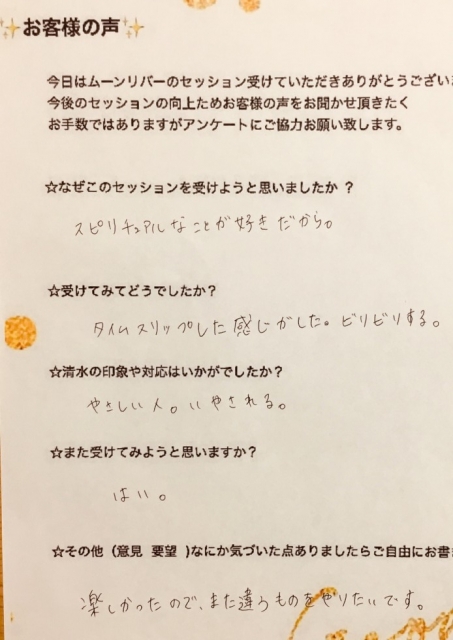 ✨お客様の声✨
今日はムーンリバーのセッション受けていただきありがとうござい
今後のセッションの向上ためお客様の声をお聞かせ頂きたく
お手数ではありますがアンケートにご協力お願い致します。
☆なぜこのセッションを受けようと思いましたか ?
スピリチュアルなことが好きだから。
☆受けてみてどうでしたか?
タイムスリップした感じがした。ビリビリする。
☆清水の印象や対応はいかがでしたか?
やさしい人。いやされる。
☆また受けてみようと思いますか?
はい。
☆その他（意見 要望 )なにか気づいた点ありましたらご自由にお書
楽しかったので、また違うものをやりたいです。